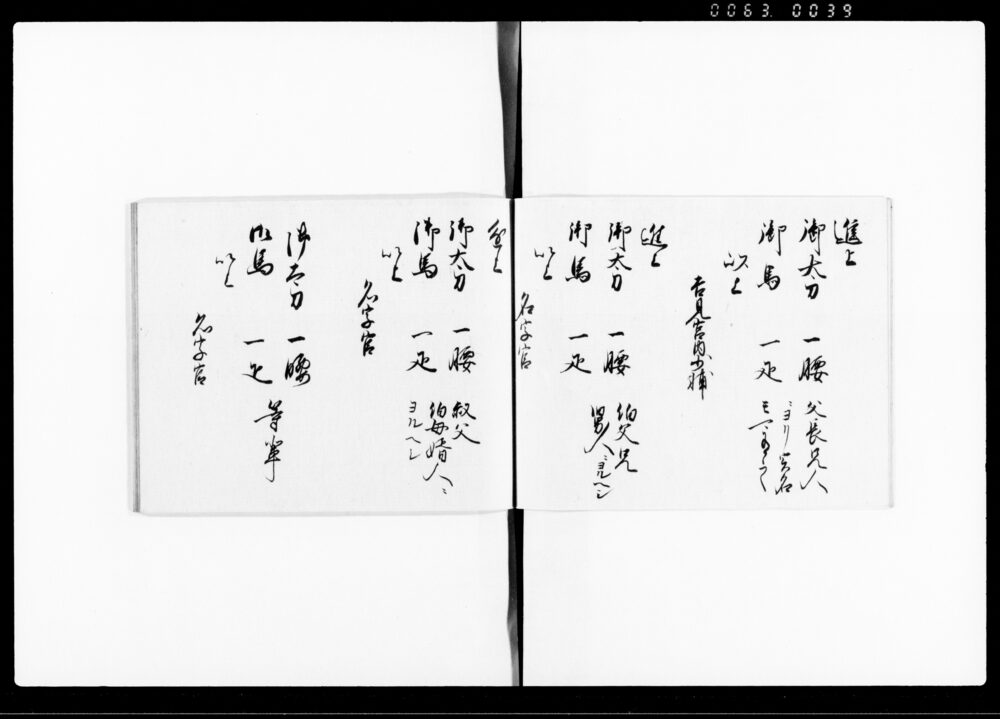 0063. 0039
進上
御太刀 一腰 父長兄人
御馬 一疋
以上
吉見宮内少輔
進上
御太刀 一腰 伯父兄
御馬 一疋 舅人ニヨルヘシ
以上
名字官
進上
御太刀 一腰 叔父
御馬 一疋 伯母婿人ニ
ヨルヘシ
以上
名字官
御太刀 一腰
御馬 一疋 等輩
以上
名字官